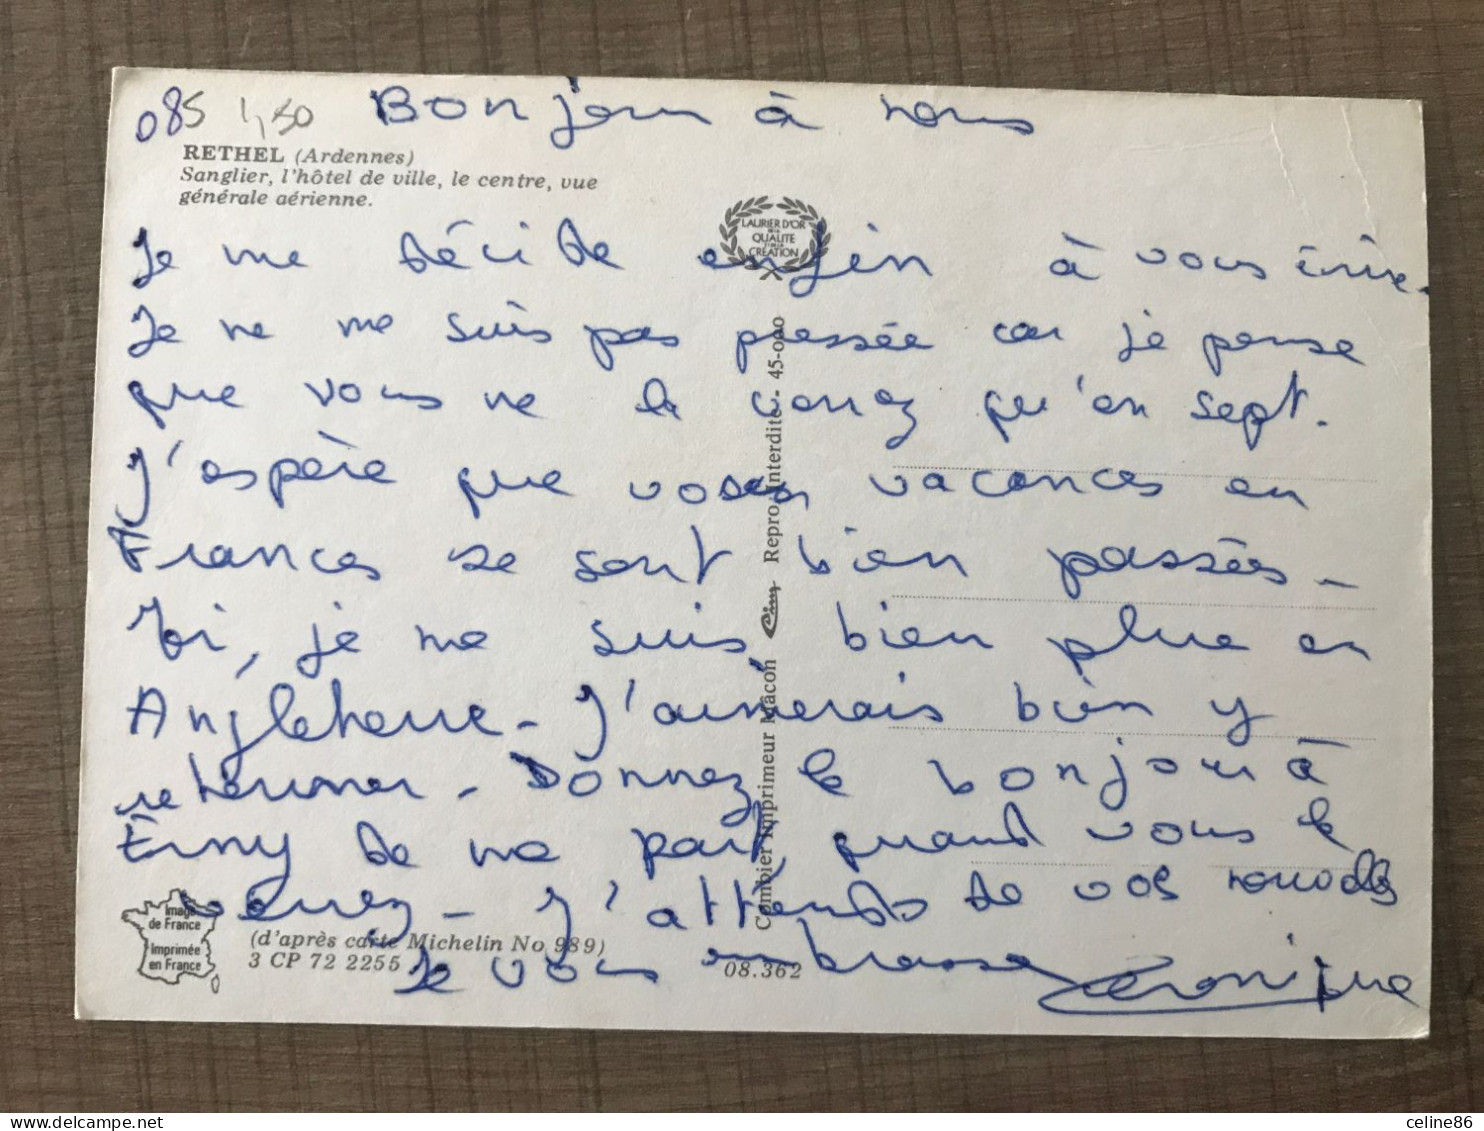 085 1,50 Bonjour à vous
RETHEL (Ardennes)
Sanglier, l'hôtel de ville, le centre, vue
générale aérienne.
LAURIER D'OR
DE LA
QUALITE
CREATION
Je me décide enfin à vous écrire.
Je ne me suis pas pressée car je pense
que vous ne la lirez qu'en sept.
J'espère que vos vacances en
Frances se sont bien passées -
Moi, je me suis bien plue en
Angleterre - J'aimerais bien y
retourner - Donnez le bonjour à
Erny de ma part quand vous le
verrez - J'attends de vos nouvelles
Je vous embrasse Véronique
Image
de France
Imprimée
en France
(d'après carte Michelin No 989)
3 CP 72 2255
08.362
Combier Imprimeur Mâcon Cim Repro Interdite - 45-000
celine86